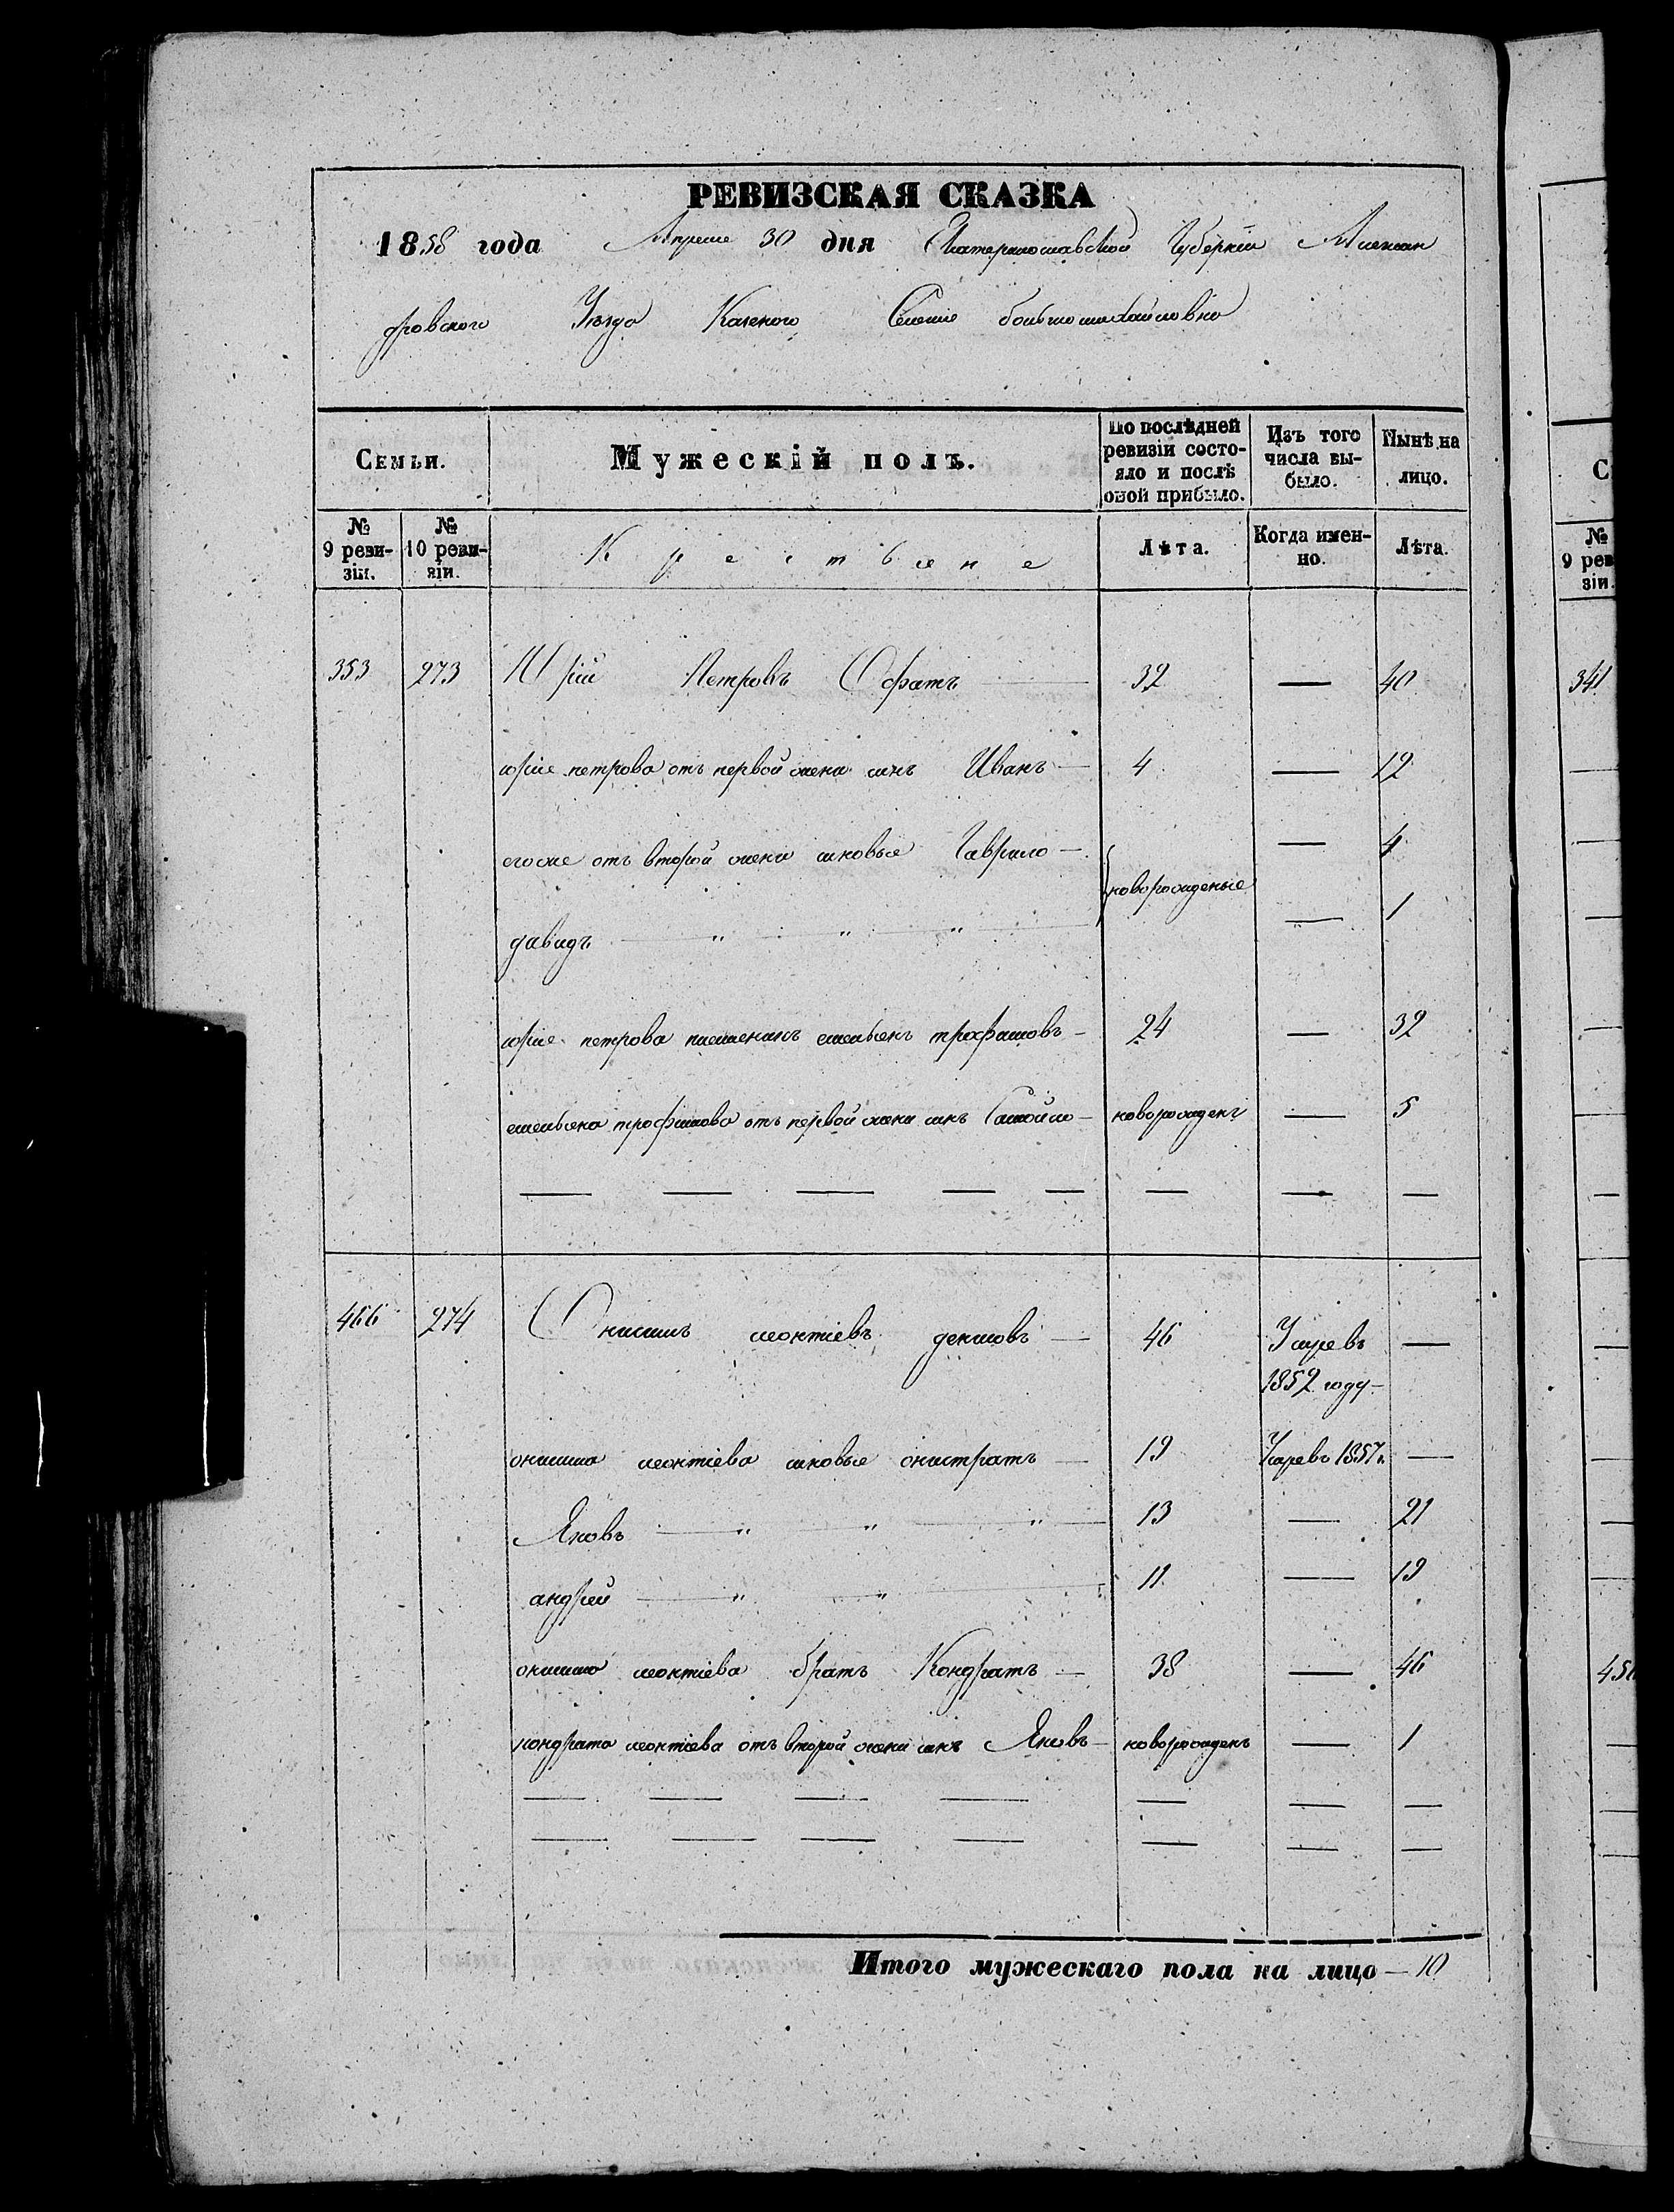 РЕВИЗСКАЯ СКАЗКА
1858 года Апреля 30 дня Екатеринославской Губернии Александ
ровского Уезда Казеного Селение большомихайловки
Семьи. Мужескій полъ. По послѣдней ревизіи состояло и послѣ оной прибыло. Изъ того числа выбыло. Нынѣ на лицо.
№ 9 ревизіи. № 10 ревизіи. Крестьяне Лѣта. Когда именно. Лѣта.
353 273 Юрій Петровъ Сфатъ — 32 — 40
юрія петрова отъ первой жени синъ Иванъ — 4 — 12
егоже отъ второй жени синовья Гаврило — новорожденые — 4
давидъ — " — " — " — 1
юрія петрова племеникъ емельянъ трофимовъ — 24 — 32
емельяна трофимова отъ первой жени синъ Самойло — новорожденъ — 5
466 274 Онисимъ леонтіевъ денисовъ — 46 Умре въ 1852 году —
онисима леонтіева синовья онистратъ — 19 Умре въ 1857 г. —
Яковъ — " — " — " — 13 — 21
андрей — " — " — 11 — 19
онисима леонтіева братъ Кондратъ — 38 — 46
кондрата леонтіева отъ второй жени синъ Яковъ — новорожденъ — 1
Итого мужескаго пола на лицо — 10
С
№ 9 рев зіи.
341